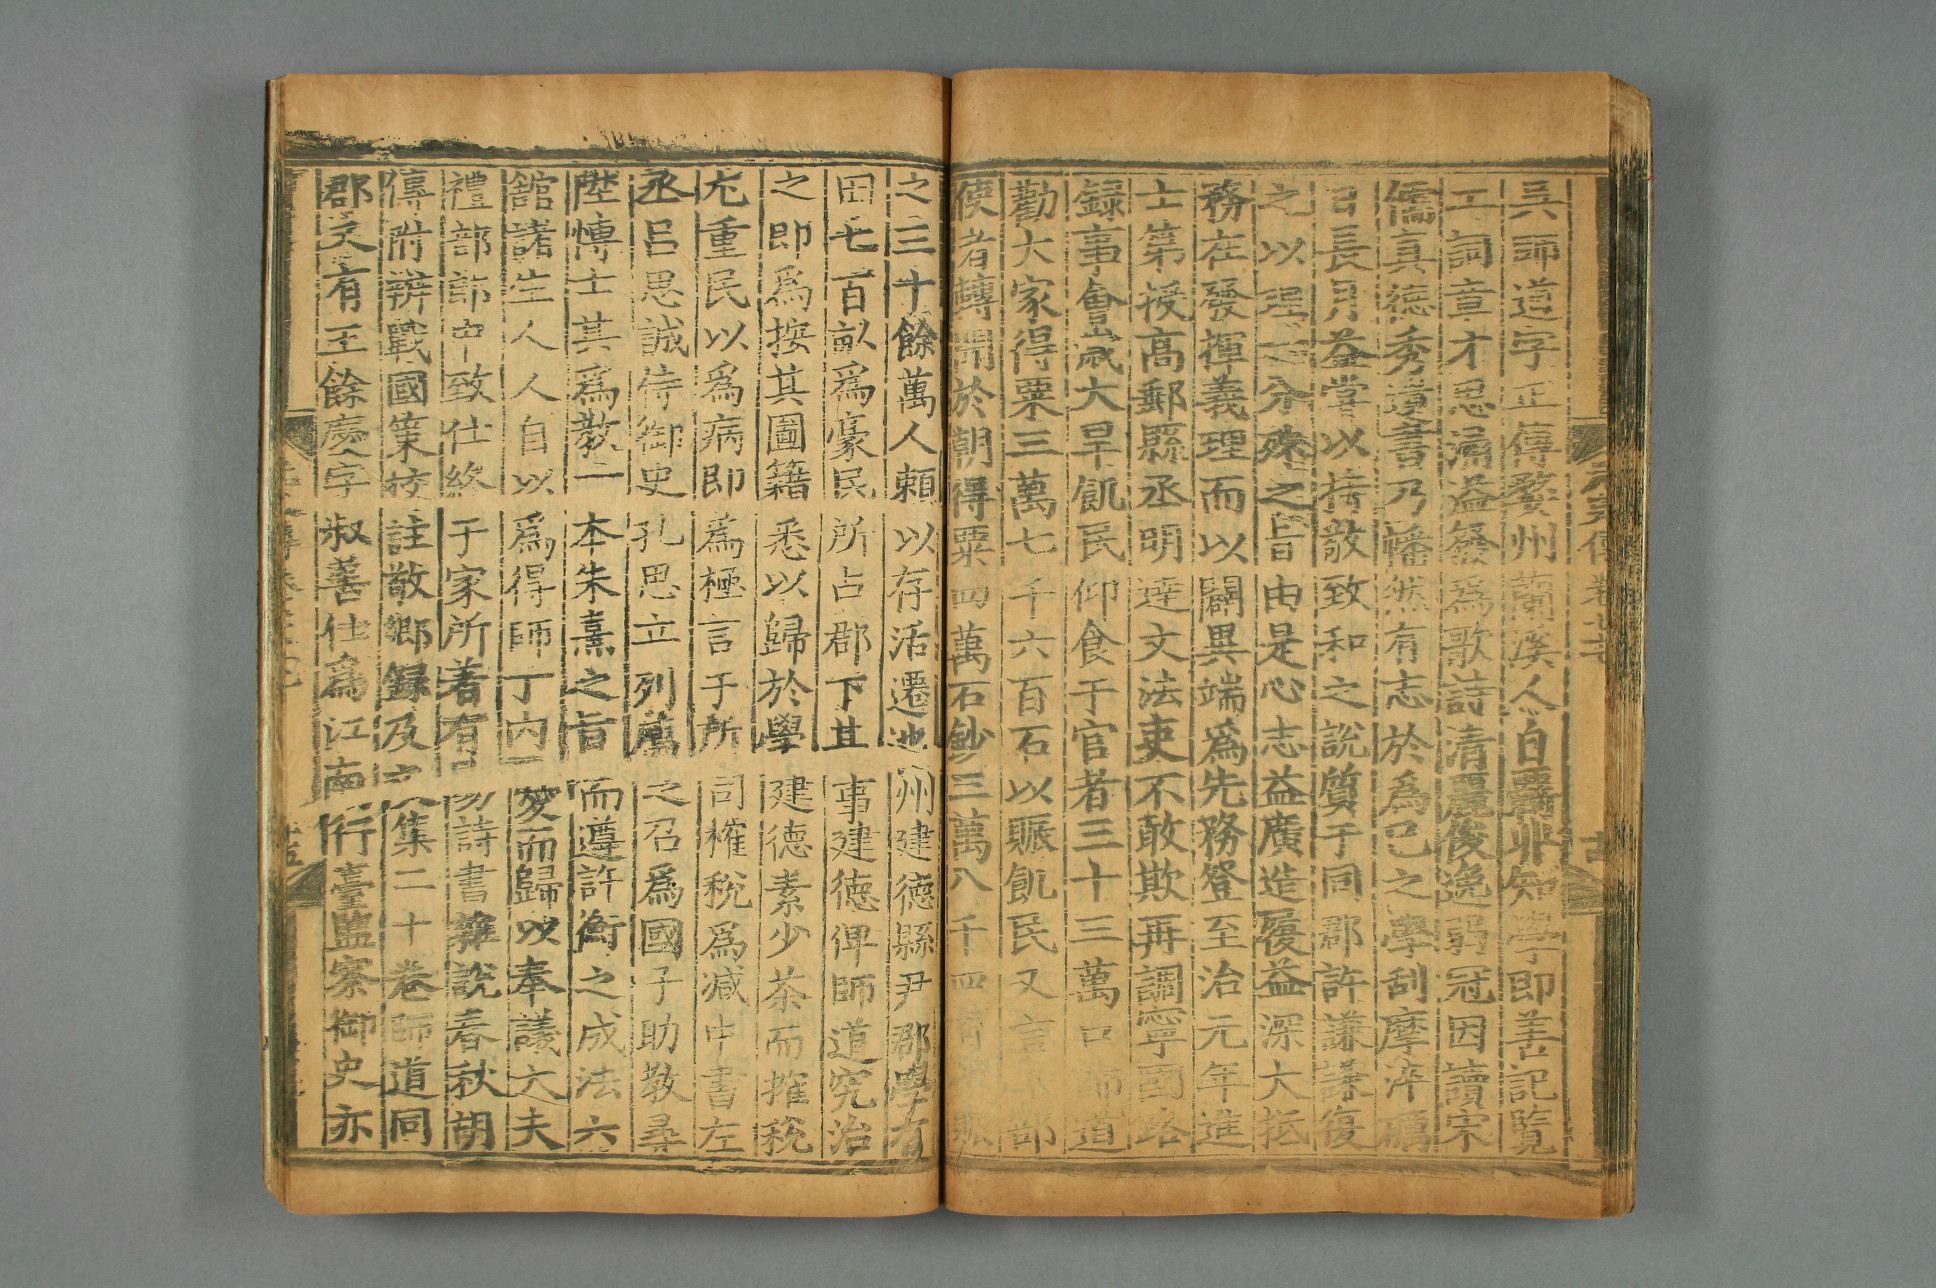 元史傳卷七十七
吴師道字正傳婺州蘭溪人自羈丱知學即善記覽
工詞章才思涌溢發爲歌詩清麗俊逸弱冠因讀宋
儒真徳秀遺書乃幡然有志於爲己之學刮摩淬礪
日長月益甞以持敬致和之說質于同郡許謙謙復
之以理一分殊之旨由是心志益廣造履益深大抵
務在發揮義理而以闢異端爲先務登至治元年進
士第授高郵縣丞明逹文法吏不敢欺再調寧國路
録事會歲大旱飢民仰食于官者三十三萬口師道
勸大家得粟三萬七千六百石以賑飢民又言于部
使者轉聞於朝得粟四萬石鈔三萬八千四百錠賑
之三十餘萬人頼以存活遷池州建徳縣尹郡學有
田七百畝爲豪民所占郡下其事建徳俾師道究治
之即爲按其圖籍悉以歸於學建徳素少茶而榷稅
尤重民以爲病即爲極言于所司榷稅爲減中書左
丞吕思誠侍御史孔思立列薦之召爲國子助教尋
陞博士其爲教一本朱熹之旨而遵許衡之成法六
館諸生人人自以爲得師丁内憂而歸以奉議大夫
禮部郎中致仕終于家所著有易詩書雜說春秋胡
傳附辨戰國策校註敬鄉録及文集二十卷師道同
郡又有王餘慶字叔善仕爲江南行臺監察御史亦